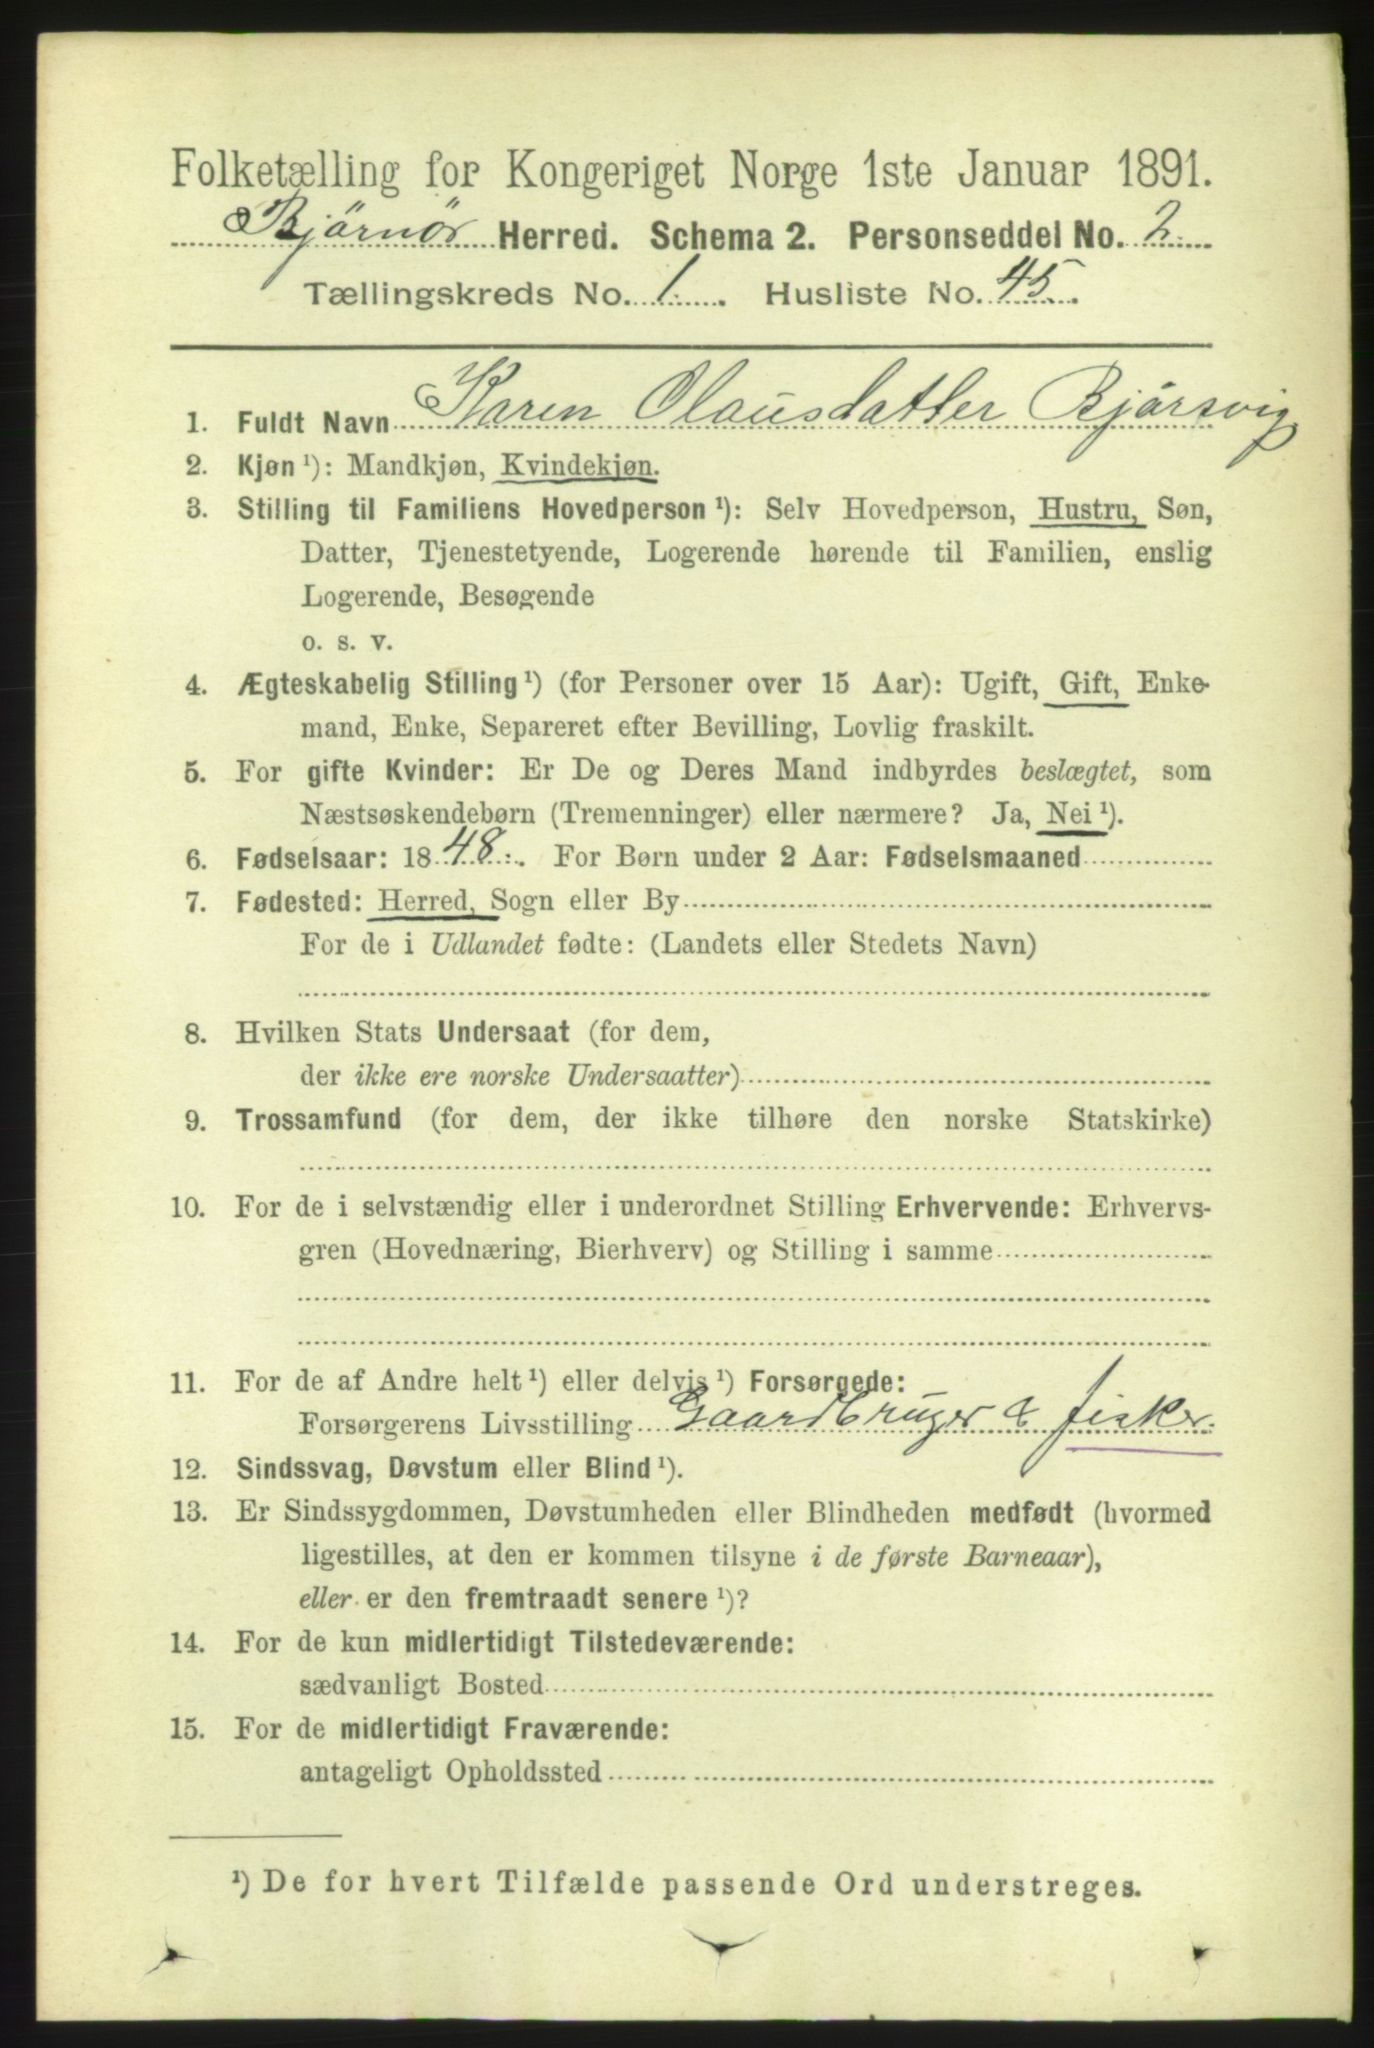 Folketælling for Kongeriget Norge 1ste Januar 1891.
Bjørnør Herred. Schema 2. Personseddel No. 2
Tællingskreds No. 1. Husliste No. 45.
1. Fuldt Navn Karen Clausdatter Bjørsvig
2. Kjøn ¹): Mandkjøn, Kvindekjøn.
3. Stilling til Familiens Hovedperson ¹): Selv Hovedperson, Hustru, Søn,
Datter, Tjenestetyende, Logerende hørende til Familien, enslig
Logerende, Besøgende
o. s. v.
4. Ægteskabelig Stilling ¹) (for Personer over 15 Aar): Ugift, Gift, Enke-
mand, Enke, Separeret efter Bevilling, Lovlig fraskilt.
5. For gifte Kvinder: Er De og Deres Mand indbyrdes beslægtet, som
Næstsøskendebørn (Tremenninger) eller nærmere? Ja, Nei ¹).
6. Fødselsaar: 1848. For Børn under 2 Aar: Fødselsmaaned
7. Fødested: Herred, Sogn eller By
For de i Udlandet fødte: (Landets eller Stedets Navn)
8. Hvilken Stats Undersaat (for dem,
der ikke ere norske Undersaatter)
9. Trossamfund (for dem, der ikke tilhøre den norske Statskirke)
10. For de i selvstændig eller i underordnet Stilling Erhvervende: Erhvervs-
gren (Hovednæring, Bierhverv) og Stilling i samme
11. For de af Andre helt ¹) eller delvis ¹) Forsørgede:
Forsørgerens Livsstilling Gaardbruger & fisker.
12. Sindssvag, Døvstum eller Blind ¹).
13. Er Sindssygdommen, Døvstumheden eller Blindheden medfødt (hvormed
ligestilles, at den er kommen tilsyne i de første Barneaar),
eller er den fremtraadt senere ¹)?
14. For de kun midlertidigt Tilstedeværende:
sædvanligt Bosted
15. For de midlertidigt Fraværende:
antageligt Opholdssted
¹) De for hvert Tilfælde passende Ord understreges.